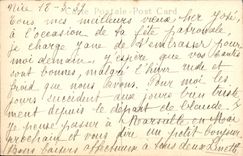 Nice 18-3-57
Post Card
Tous mes meilleurs vœux cher
à l'occasion de ta fête patronale
je charge Jane de t'embrasser pour
moi demain. J'espère que vos santés
sont bonnes, malgré l'hiver rude et
froid que nous avons. Pour moi les
jours succèdent aux jours bien
ment depuis le départ de Claude. Si
je peux passer à Marseille en Mai
prochain et vous dire un petit bonjour.
Bons baisers affectueux à tous deux